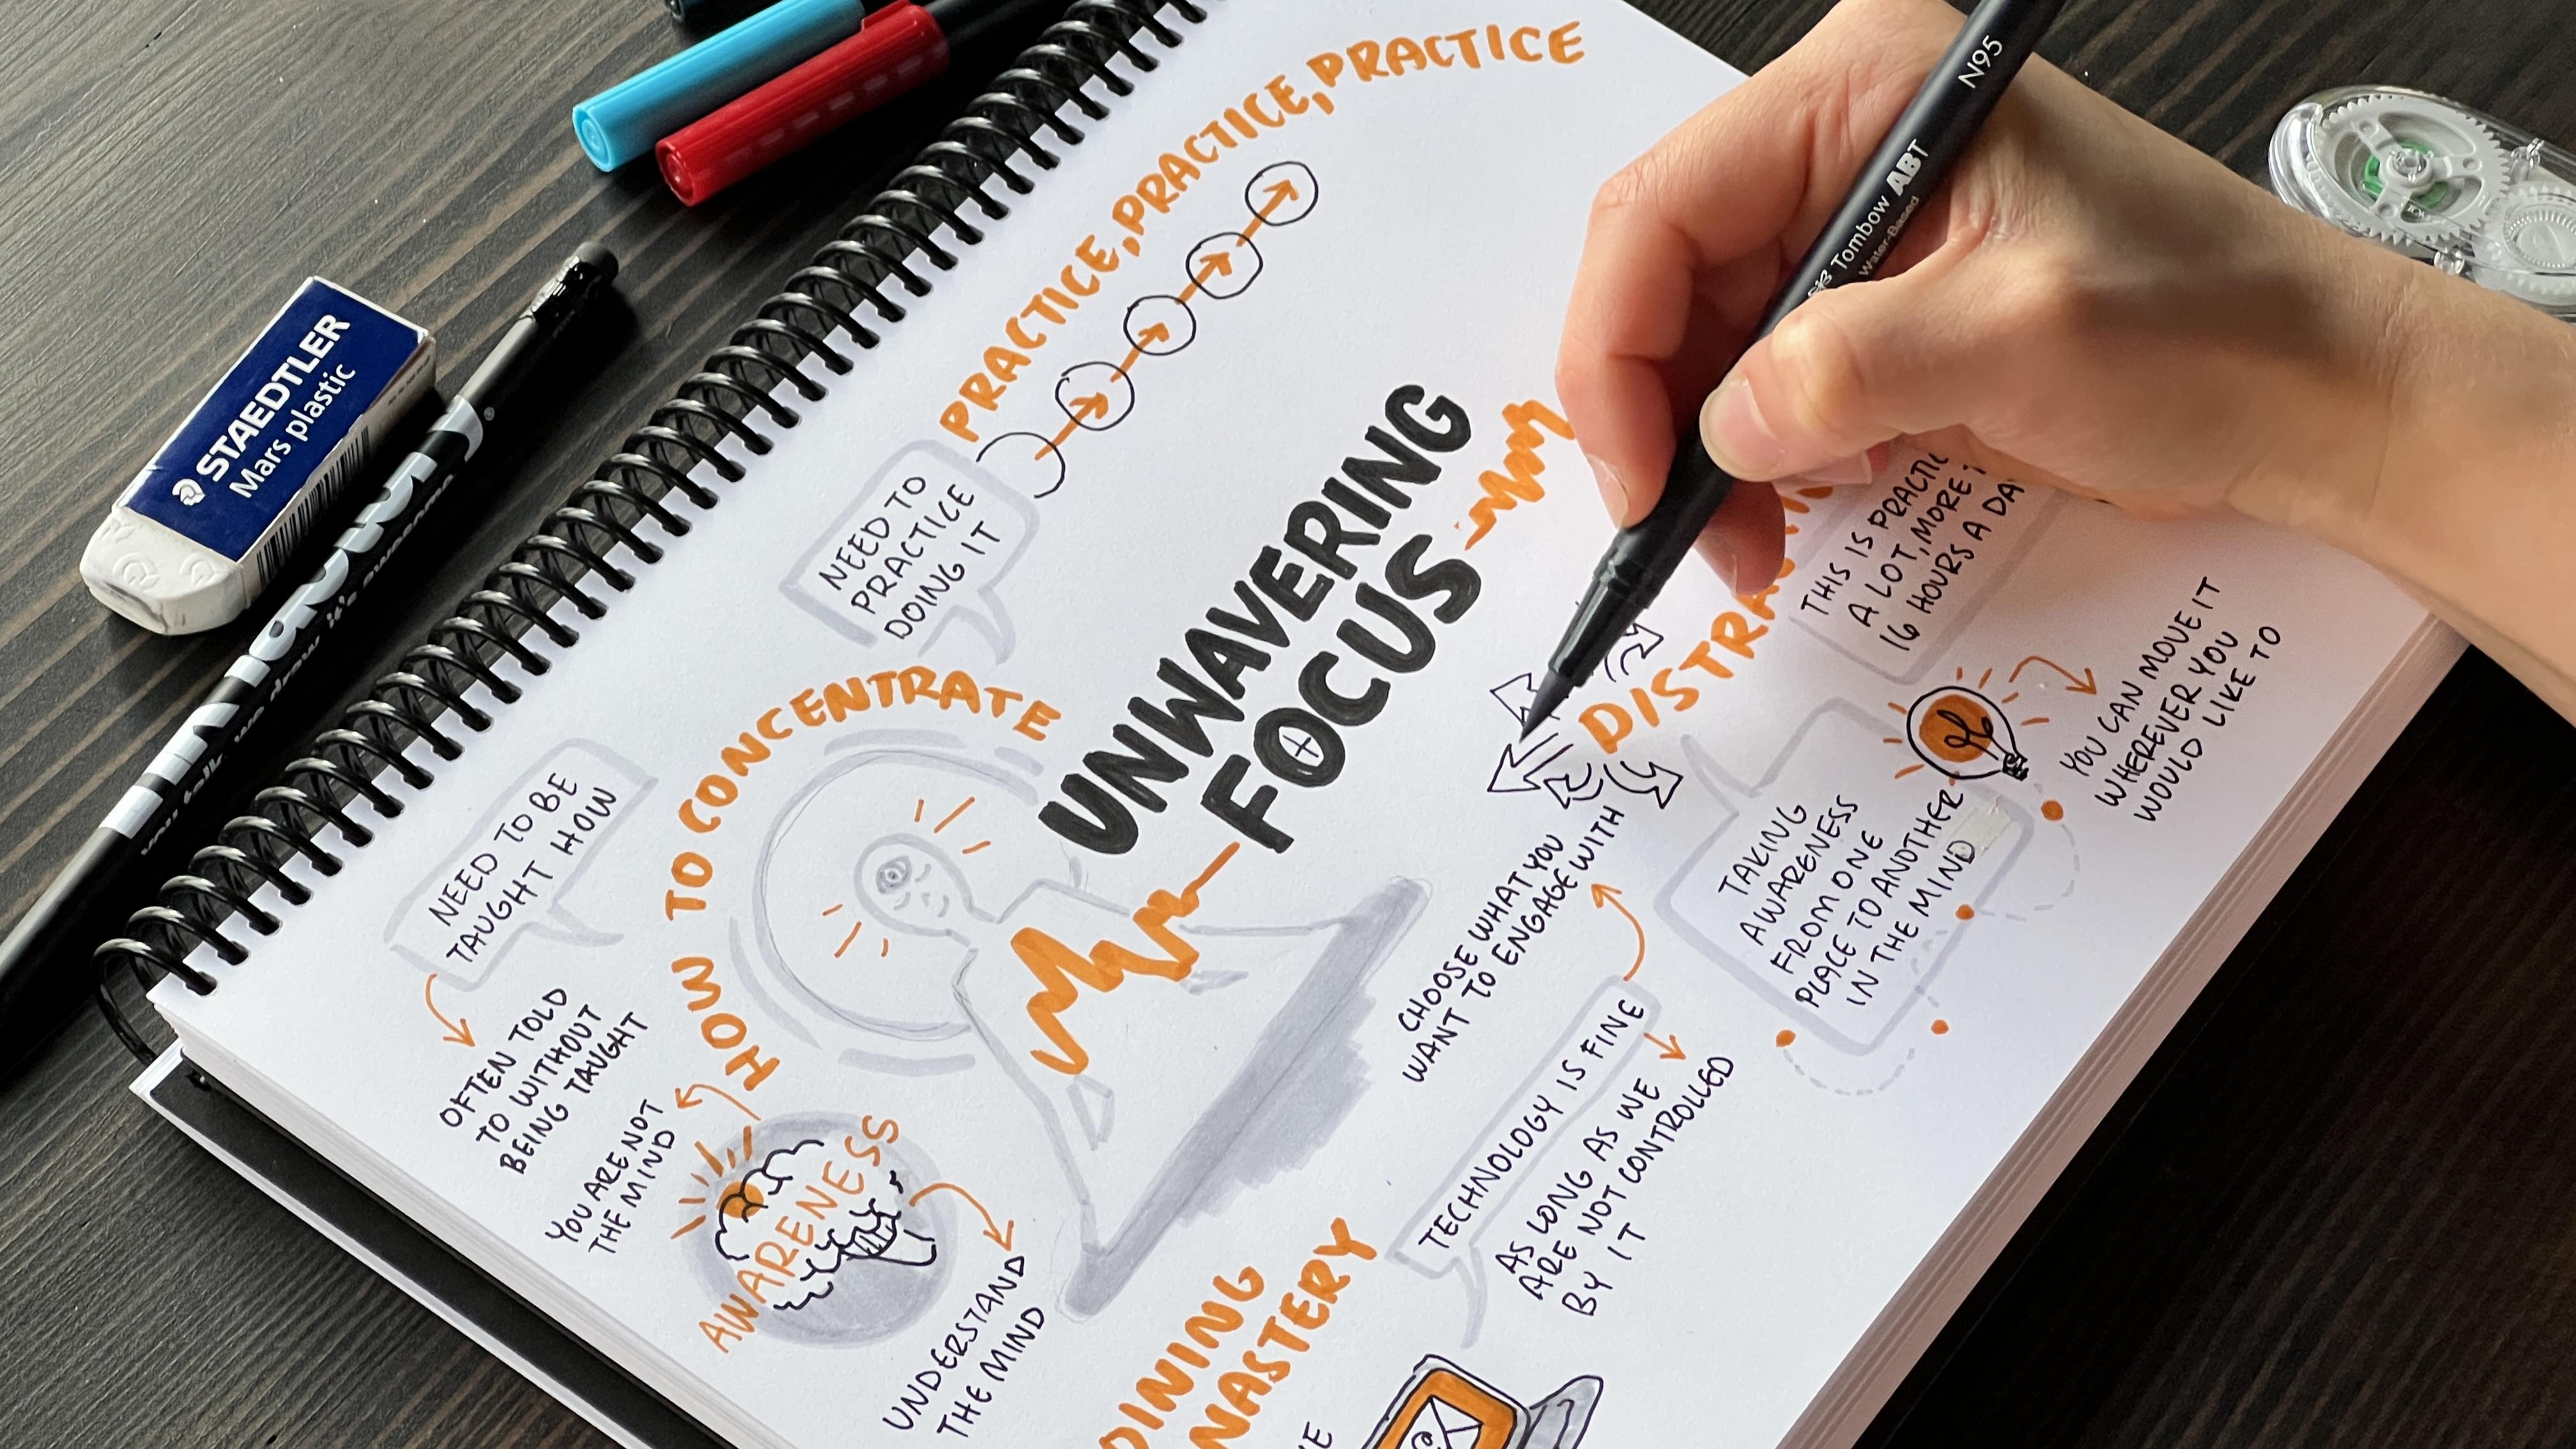 PRACTICE, PRACTICE, PRACTICE
NEED TO
PRACTICE
DOING IT
UNWAVERING
FOCUS
HOW TO CONCENTRATE
NEED TO BE
TAUGHT HOW
OFTEN TOLD
TO WITHOUT
BEING TAUGHT
YOU ARE NOT
THE MIND
AWARENESS
UNDERSTAND
THE MIND
THIS IS
A LOT, MORE
16 HOURS A
YOU CAN MOVE IT
WHEREVER YOU
WOULD LIKE TO
TAKING
AWARENESS
FROM ONE
PLACE TO ANOTHER
IN THE MIND
CHOOSE WHAT YOU
WANT TO ENGAGE WITH
TECHNOLOGY IS FINE
AS LONG AS WE
ARE NOT CONTROLLED
BY IT
@
STAEDTLER
Mars plastic
N95
Tombow ABT
Water-Based